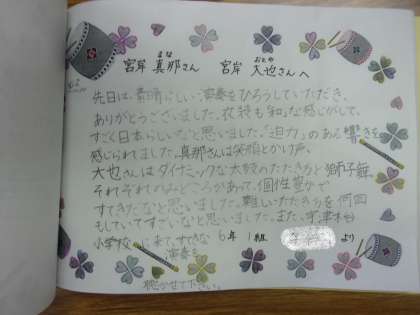 宮岸 真那さん 宮岸 大也さんへ
まな おとや
先日は、素晴らしい演奏をひろうしていただき、
ありがとうございました。衣装も和な感じがして、
すごく日本らしいなと思いました。"迫力"のある響きを
感じられました。真那さんは笑顔とかけ声、
大也さんはダイナミックな太鼓のたたき方と獅子舞、
それぞれのみどころがあって、個性豊かで
すてきだなと思いました。難しいたたき方を何回
もしていてすごいなと思いました。また、
小学校に来て、すてきな 6年 1組 より
演奏を
聴かせて下さい。